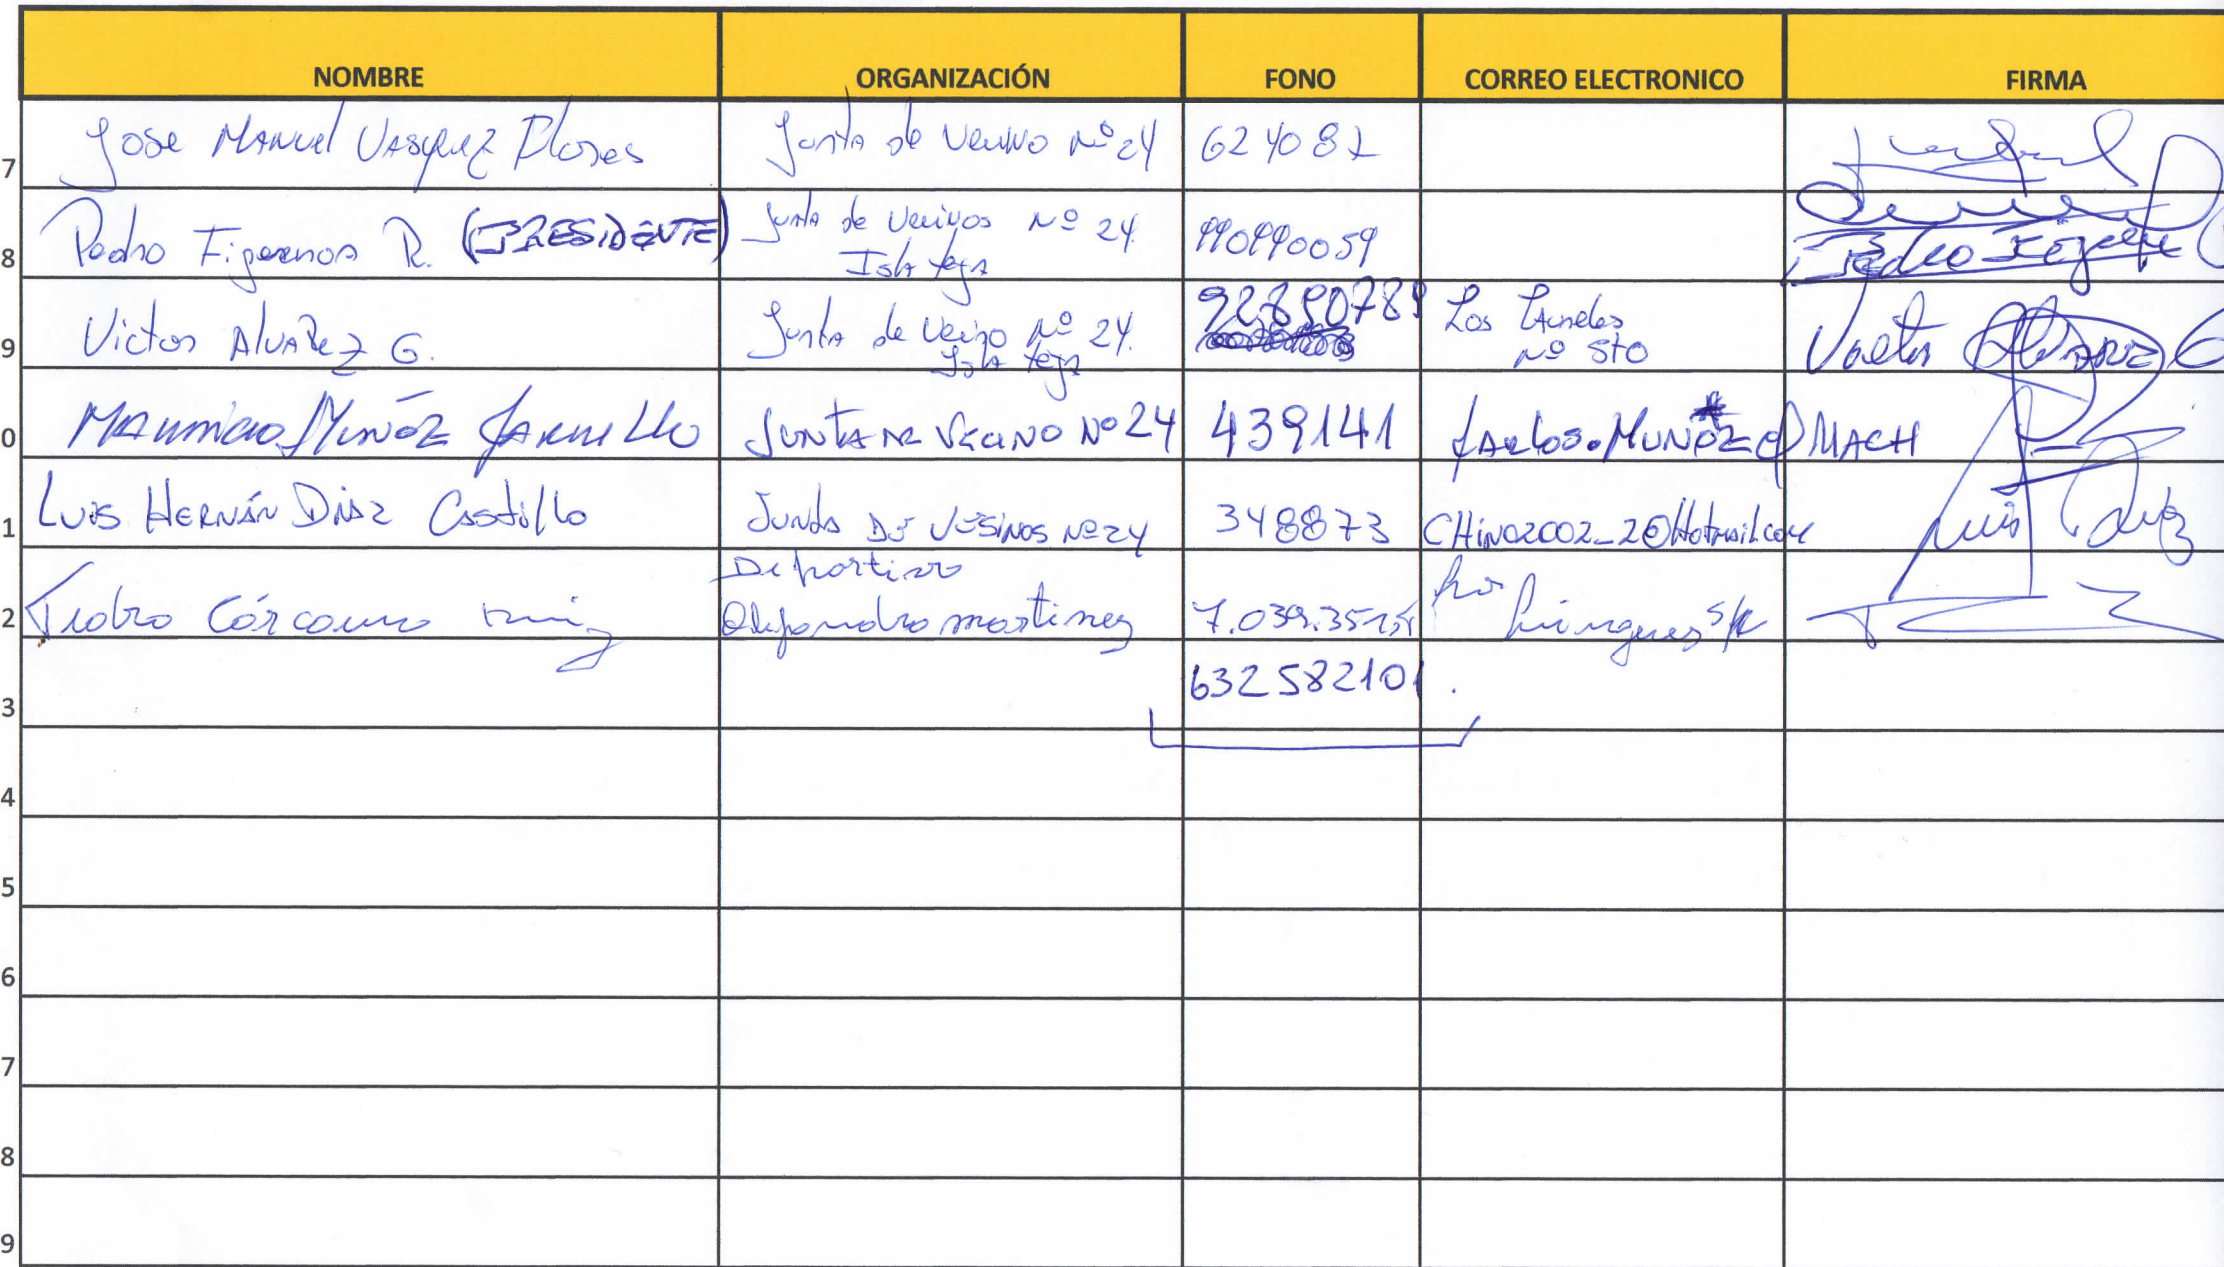 NOMBRE ORGANIZACIÓN FONO CORREO ELECTRONICO FIRMA
7 Jose Manuel Vasquez Flores Junta de Vecino Nº 24 624081
8 Pedro Figueroa R. (PRESIDENTE) Junta de Vecinos Nº 24 990990059
Isla Teja
9 Victor Alvarez G. Junta de Vecino Nº 24. 92890789 Los Laureles Victor Alvarez G
Isla Teja Nº 570
0 Mauricio Muñoz Jaramillo Junta de Vecino Nº 24 439141 Carlos.Muñoz@MACH
1 Luis Hernán Diaz Castillo Junta De Vesinos Nº 24 348873 CHino2002_2@Hotmail.com Luis Diaz
2 Pedro Cárcamo Deportivo
Alejandro Martinez 7.039.351 Los Lingues S/N
3 632582101.
4
5
6
7
8
9